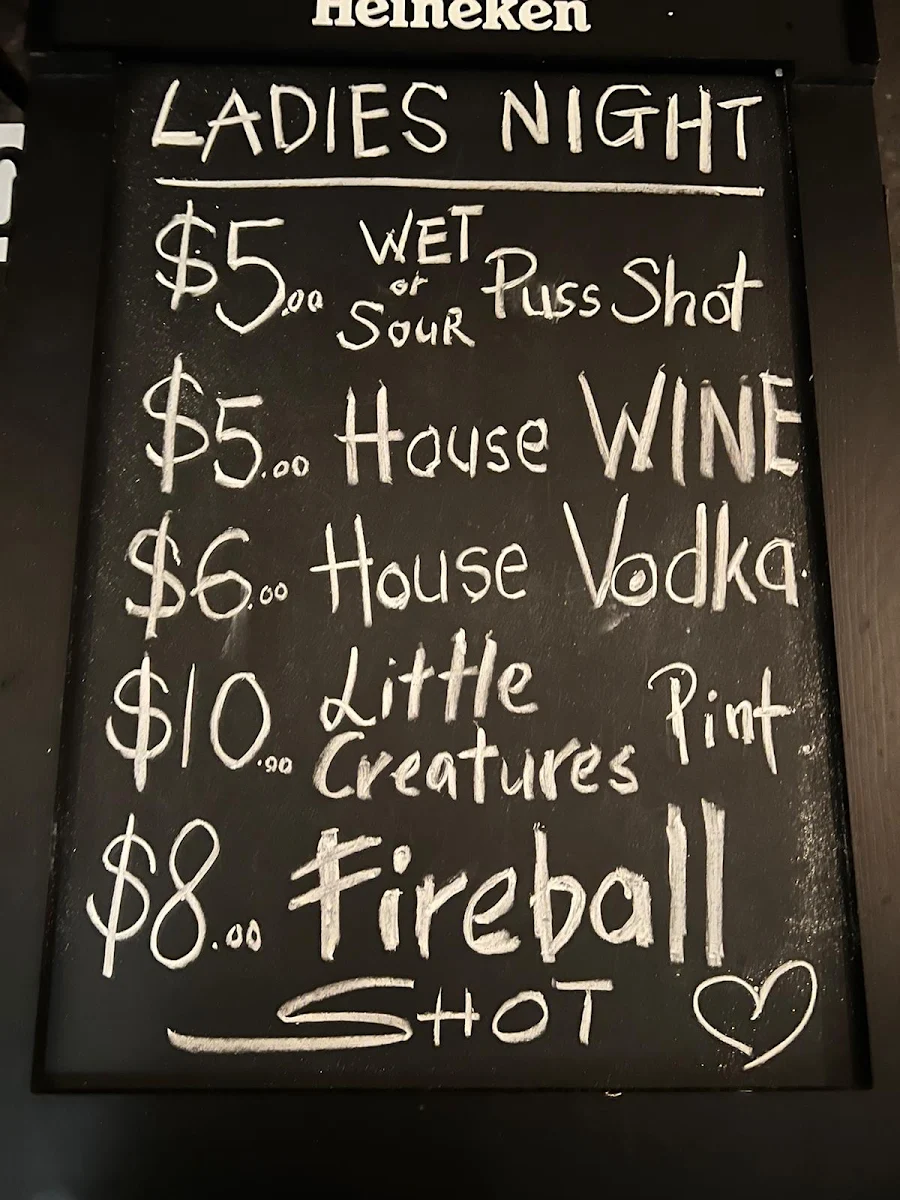 Heineken
LADIES NIGHT
$5.00 WET or SOUR Puss Shot
$5.00 House WINE
$6.00 House Vodka.
$10.00 Little Creatures Pint.
$8.00 Fireball
SHOT